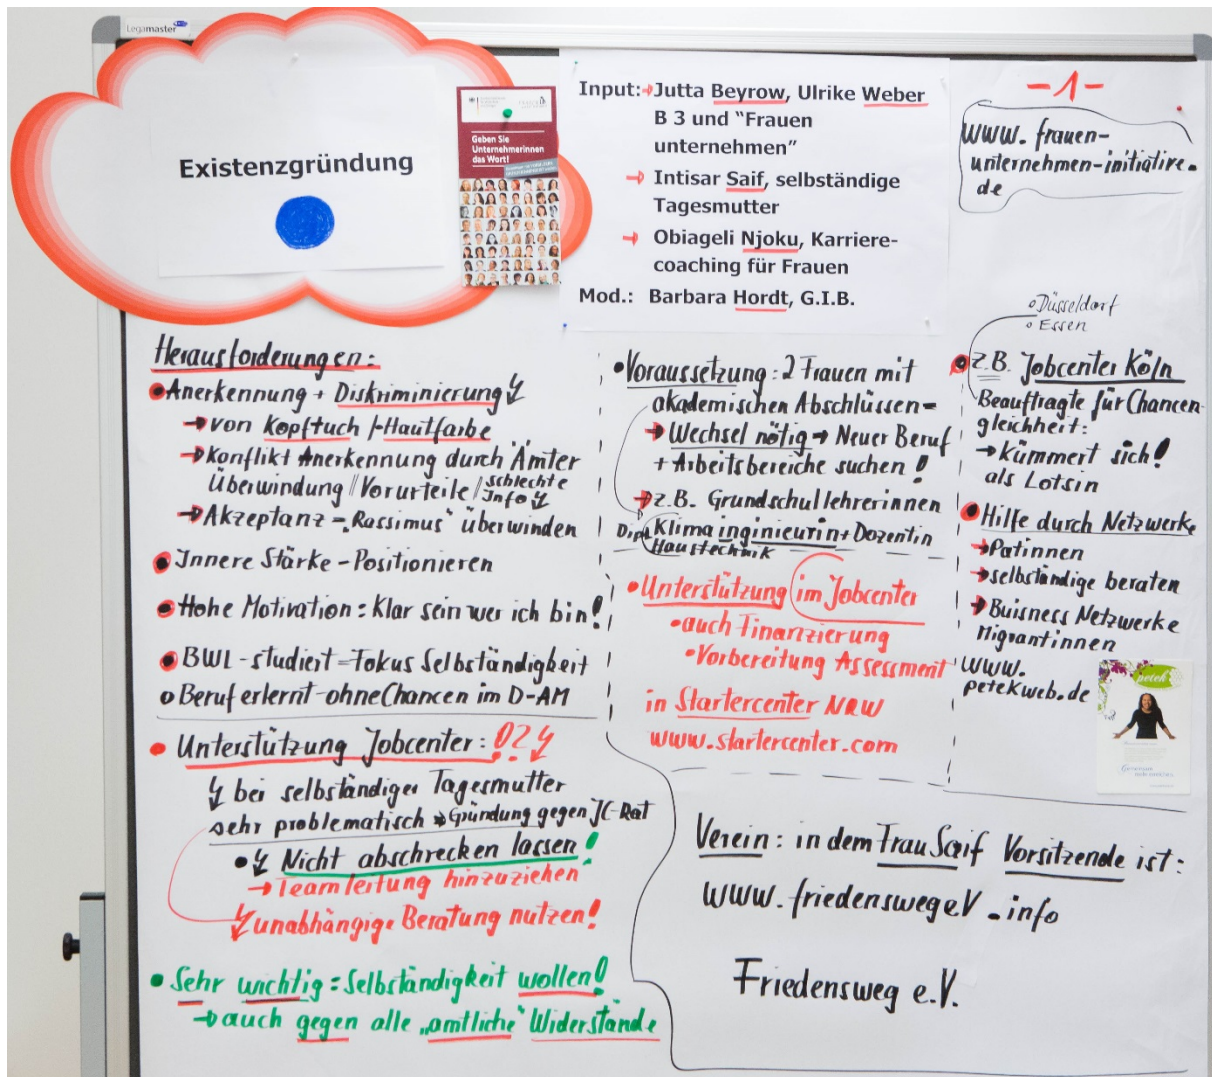 Legamaster
Existenzgründung
Geben Sie
Unternehmerinnen
das Wort!
Input: → Jutta Beyrow, Ulrike Weber
B 3 und "Frauen
unternehmen"
→ Intisar Saif, selbständige
Tagesmutter
→ Obiageli Njoku, Karriere-
coaching für Frauen
Mod.: Barbara Hordt, G.I.B.
-1-
www. frauen-
unternehmen-initiative.
de
Herausforderungen:
• Anerkennung + Diskriminierung
→ von Kopftuch /-Hautfarbe
→ Konflikt Anerkennung durch Ämter
Überwindung // Vorurteile / schlechte
Info
→ Akzeptanz - „Rassimus" überwinden
• Innere Stärke - Positionieren
• Hohe Motivation = Klar sein wer ich bin!
• BWL - studiert = Fokus Selbständigkeit
o Beruf erlernt - ohne Chancen im D-AM
• Unterstützung Jobcenter: !?
bei selbständiger Tagesmutter
sehr problematisch → Gründung gegen JC-Rat
• Nicht abschrecken lassen!
→ Teamleitung hinzuziehen
unabhängige Beratung nutzen!
• Sehr wichtig = Selbständigkeit wollen!
→ auch gegen alle „amtliche" Widerstände
• Voraussetzung: 2 Frauen mit
akademischen Abschlüssen =
→ Wechsel nötig → Neuer Beruf
+ Arbeitsbereiche suchen!
→ z.B. Grundschullehrerinnen
Dipl. Klimaingineurin + Dozentin
Haustechnik
• Unterstützung im Jobcenter
• auch Finanzierung
• Vorbereitung Assessment
in Startercenter NRW
www.startercenter.com
o Düsseldorf
o Essen
• z.B. Jobcenter Köln
Beauftragte für Chancen
gleichheit:
→ Kümmert sich!
als Lotsin
• Hilfe durch Netzwerke
→ Patinnen
→ selbständige beraten
→ Buisness Netzwerke
Migrantinnen
www.
petekweb.de
petek
Verein: in dem Frau Saif Vorsitzende ist:
www. friedenswegeV . info
Friedensweg e.V.